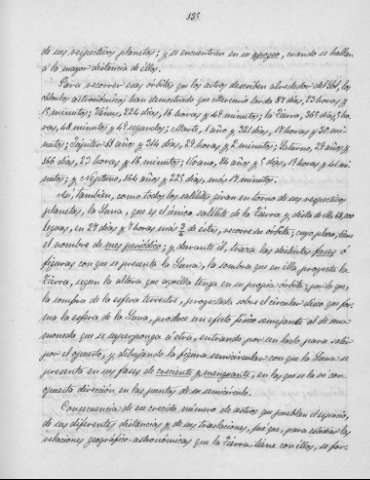 135
de sus respectivos planetas; y se encuentran en su apogeo, cuando se hallan
á la mayor distancia de ellos.
Para recorrer esas órbitas que los astros describen alrededor del Sol, los
astronómicos han demostrado que Mercurio tarda 87 dias, 23 horas y
15 minutos; Vénus, 224 dias, 16 horas y 49 minutos; la Tierra, 365 dias, 5 ho-
ras, 48 minutos y 49 segundos; Marte, 1 año y 321 dias, 17 horas y 30 mi-
nutos; Júpiter 11 años y 314 dias, 20 horas y 2 minutos; Saturno, 29 años y
166 dias, 23 horas y 16 minutos; Urano, 84 años y 5 dias, 19 horas y 41 mi-
nutos; y Neptuno, 164 años y 225 dias, mas 17 minutos.
Así, tambien, como todos los satélites giran en torno de sus respectivos
planetas, la Luna, que es el único satélite de la Tierra y dista de ella
leguas, en 29 dias y horas mas de éstos, recorre su órbita; cuyo plazo, tiene
el nombre de mes periódico; y durante él, traza las distintas fases ó
figuras con que se presenta la Luna, la sombra que en ella proyecta la
Tierra, segun la altura que aquella tenga en su propia órbita; por lo que,
la sombra de la esfera terrestre, proyectada sobre el circular disco que for-
ma la esfera de la Luna, produce un efecto físico semejante al de una
moneda que se superponga á otra, entrando por un lado para salir
por el opuesto, y dibujando la figura semicircular con que la Luna se
presenta en sus fases de creciente y menguante, en las que se la ve con
opuesta direccion, en las puntas de su semicírculo.
Consecuencia de un crecido número de astros que pueblan el espacio,
de sus diferentes distancias y de sus traslaciones, fué que, para estudiar las
relaciones geográfico-astronómicas que la Tierra tiene con ellos, se for-